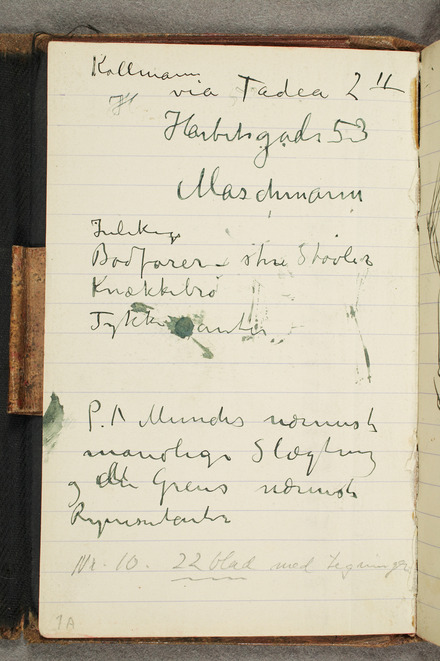 Kollmann
via Tadea 2 II
H
Herbitsgade 53
Maschmann
Julekage
Bodforer store Støvler
Knækkebrø
Tykke
P. A Munchs nærmeste
mandlige Slægtning
og Grens nærmeste
Repræsentanter
Nr. 10. 22 blad med tegninger
1A